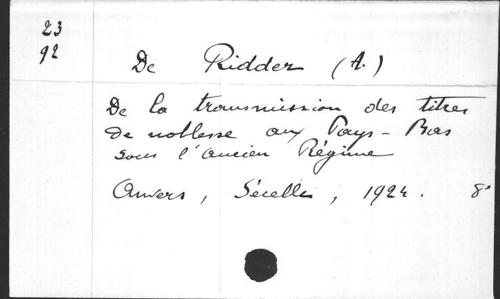 23
92
De Ridder (A.)
De la transmission des titres
de noblesse aux Pays-Bas
sous l'ancien Régime
Anvers, Sécelle, 1924. 8°